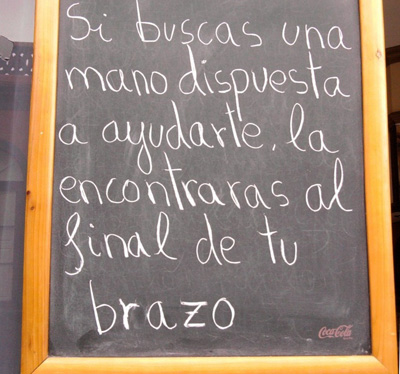 Si buscas una
mano dispuesta
a ayudarte, la
encontraras al
final de tu
brazo
Coca-Cola